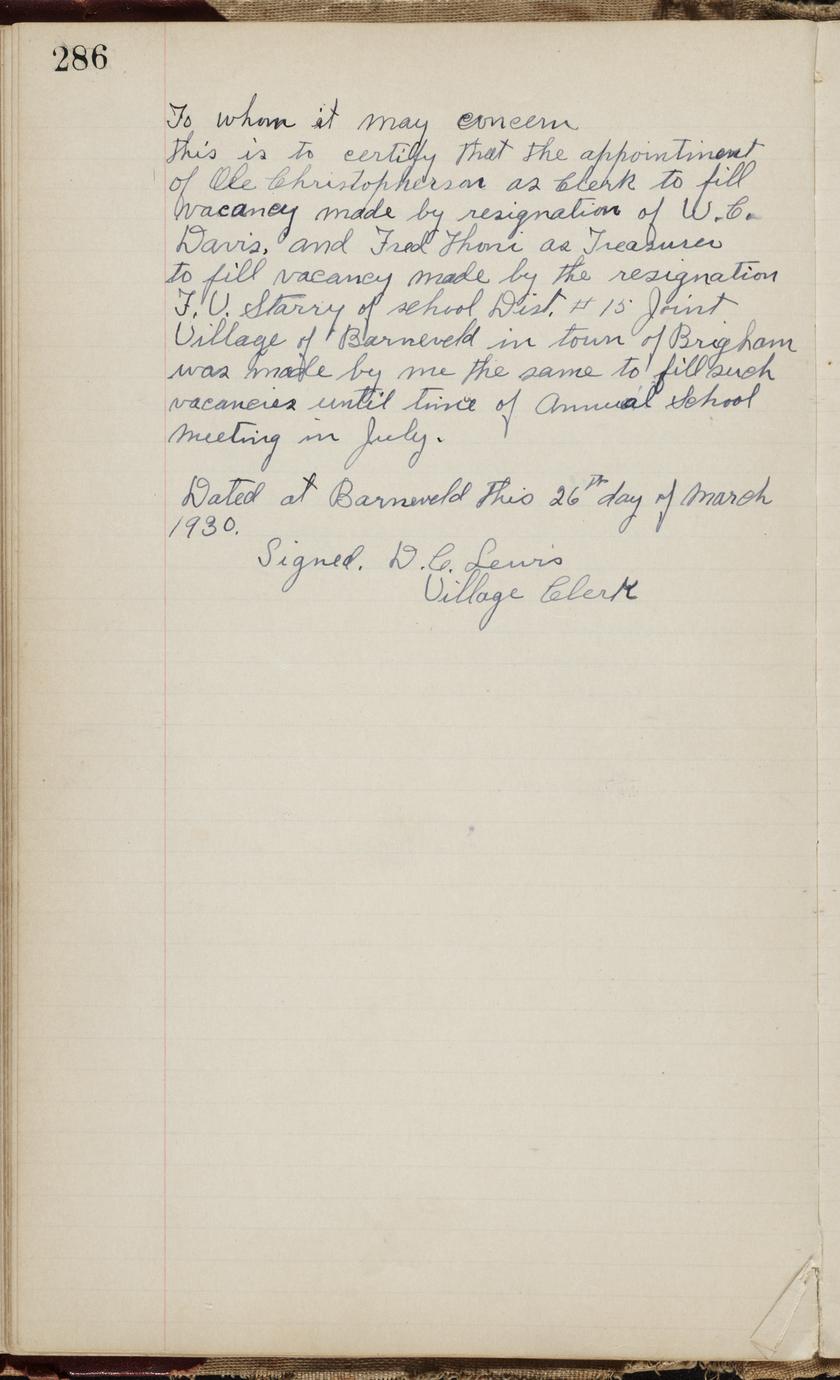 286
To whom it may concern
this is to certify that the appointment
of Ole Christopherson as Clerk to fill
vacancy made by resignation of W.C.
Davis, and Fred Thoni as Treasurer
to fill vacancy made by the resignation
F.V. Starry of school Dist. # 15 Joint
Village of Barneveld in town of Brigham
was made by me the same to fill such
vacancies until time of Annual School
meeting in July.
Dated at Barneveld this 26th day of March
1930.
Signed. D.C. Lewis
Village Clerk